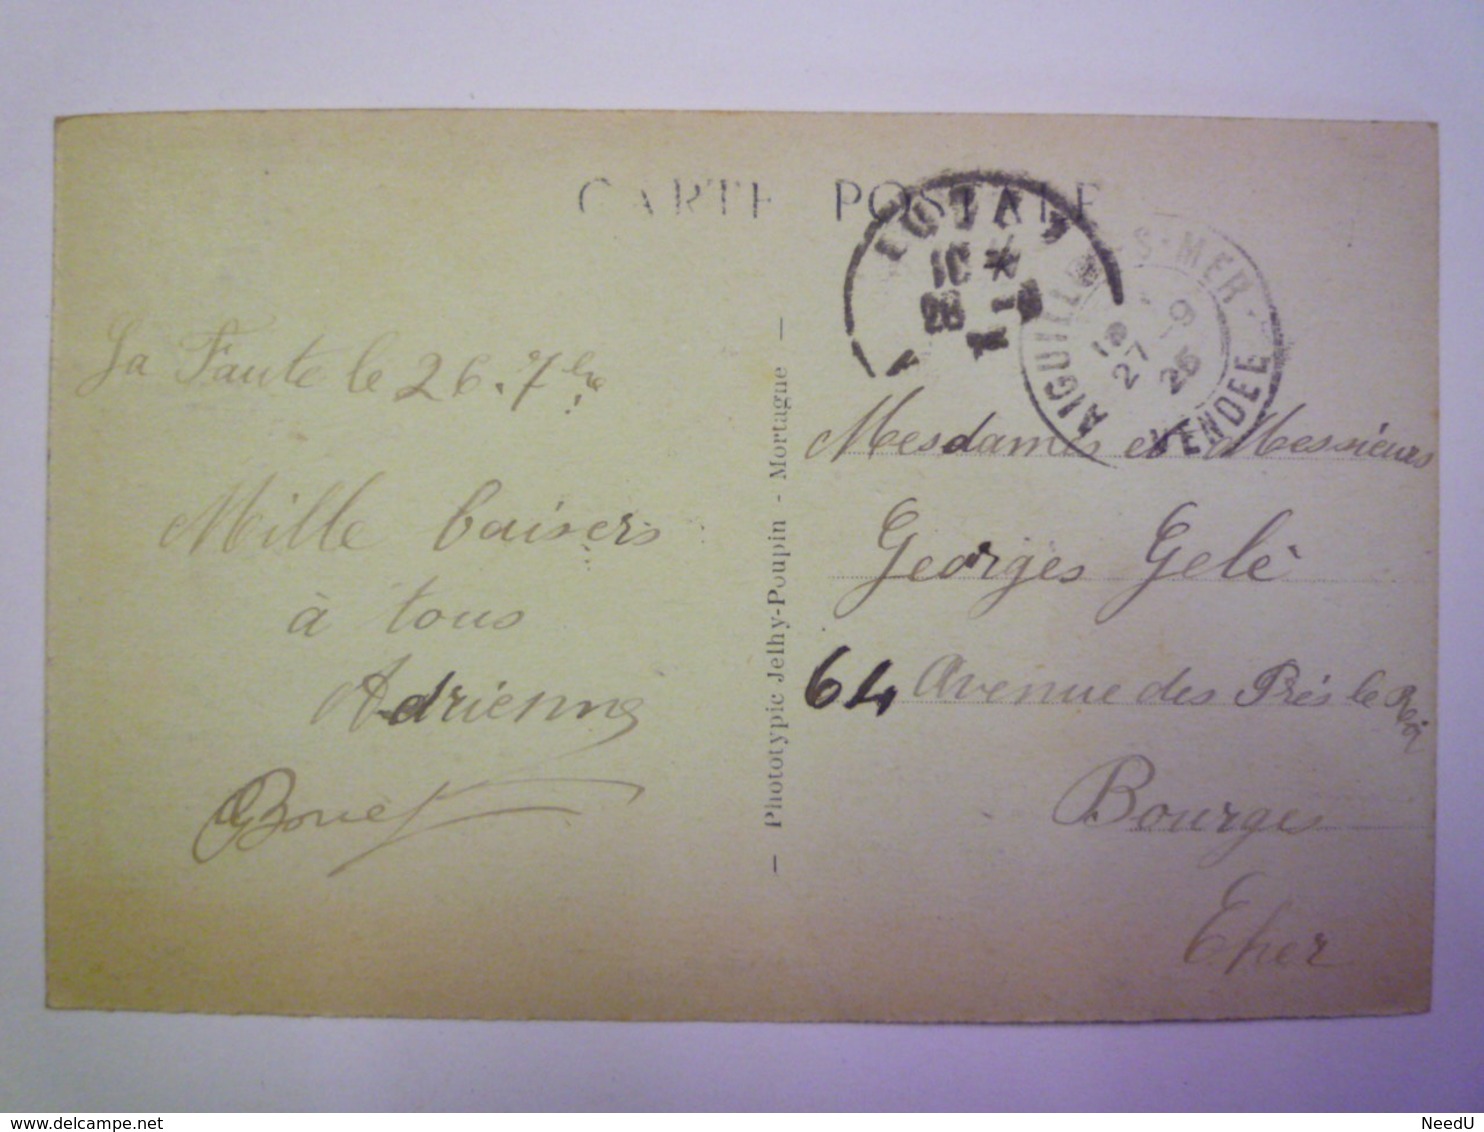 CARTE POSTALE
La Faute le 26.7bre
Mille baisers
à tous
Adrienne
Bouet
— Phototypie Jelhy-Poupin - Mortagne —
10 *
28 -9
AIGUILLON-S-MER
18
27 -9
25
VENDEE
Mesdames et Messieurs
Georges Gelé
64 Avenue des Prés le Roi
Bourges
Cher
delcampe.net
NeedU